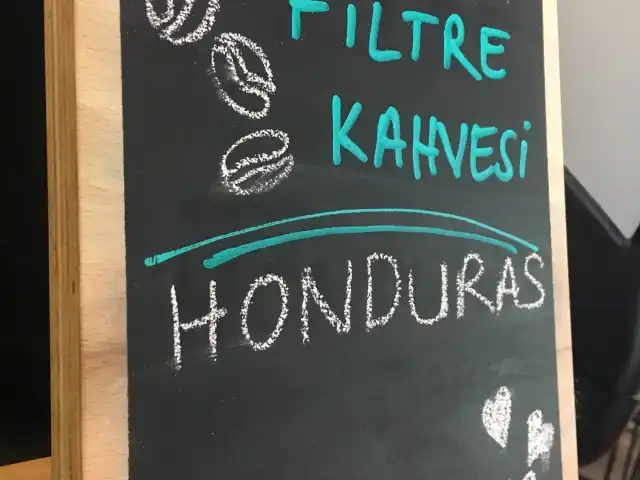 FILTRE
KAHVESİ
HONDURAS